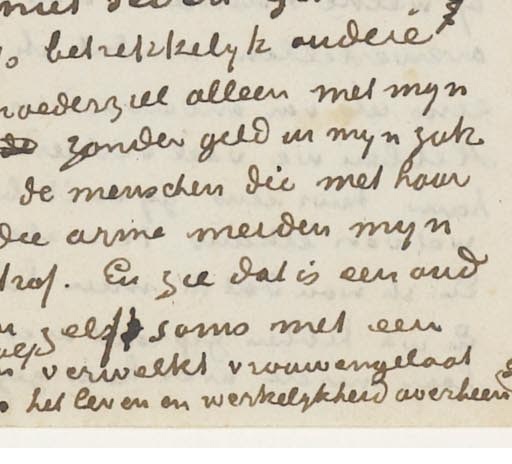 betrekkelyk oudere
moederziel alleen met myn
de zonder geld in myn zak
de menschen die met haar
die arme meiden myn
trof. En zie dat is een oud
zelfs soms met een
verwelkt vrouwengelaat
het leven en werkelykheid overheen